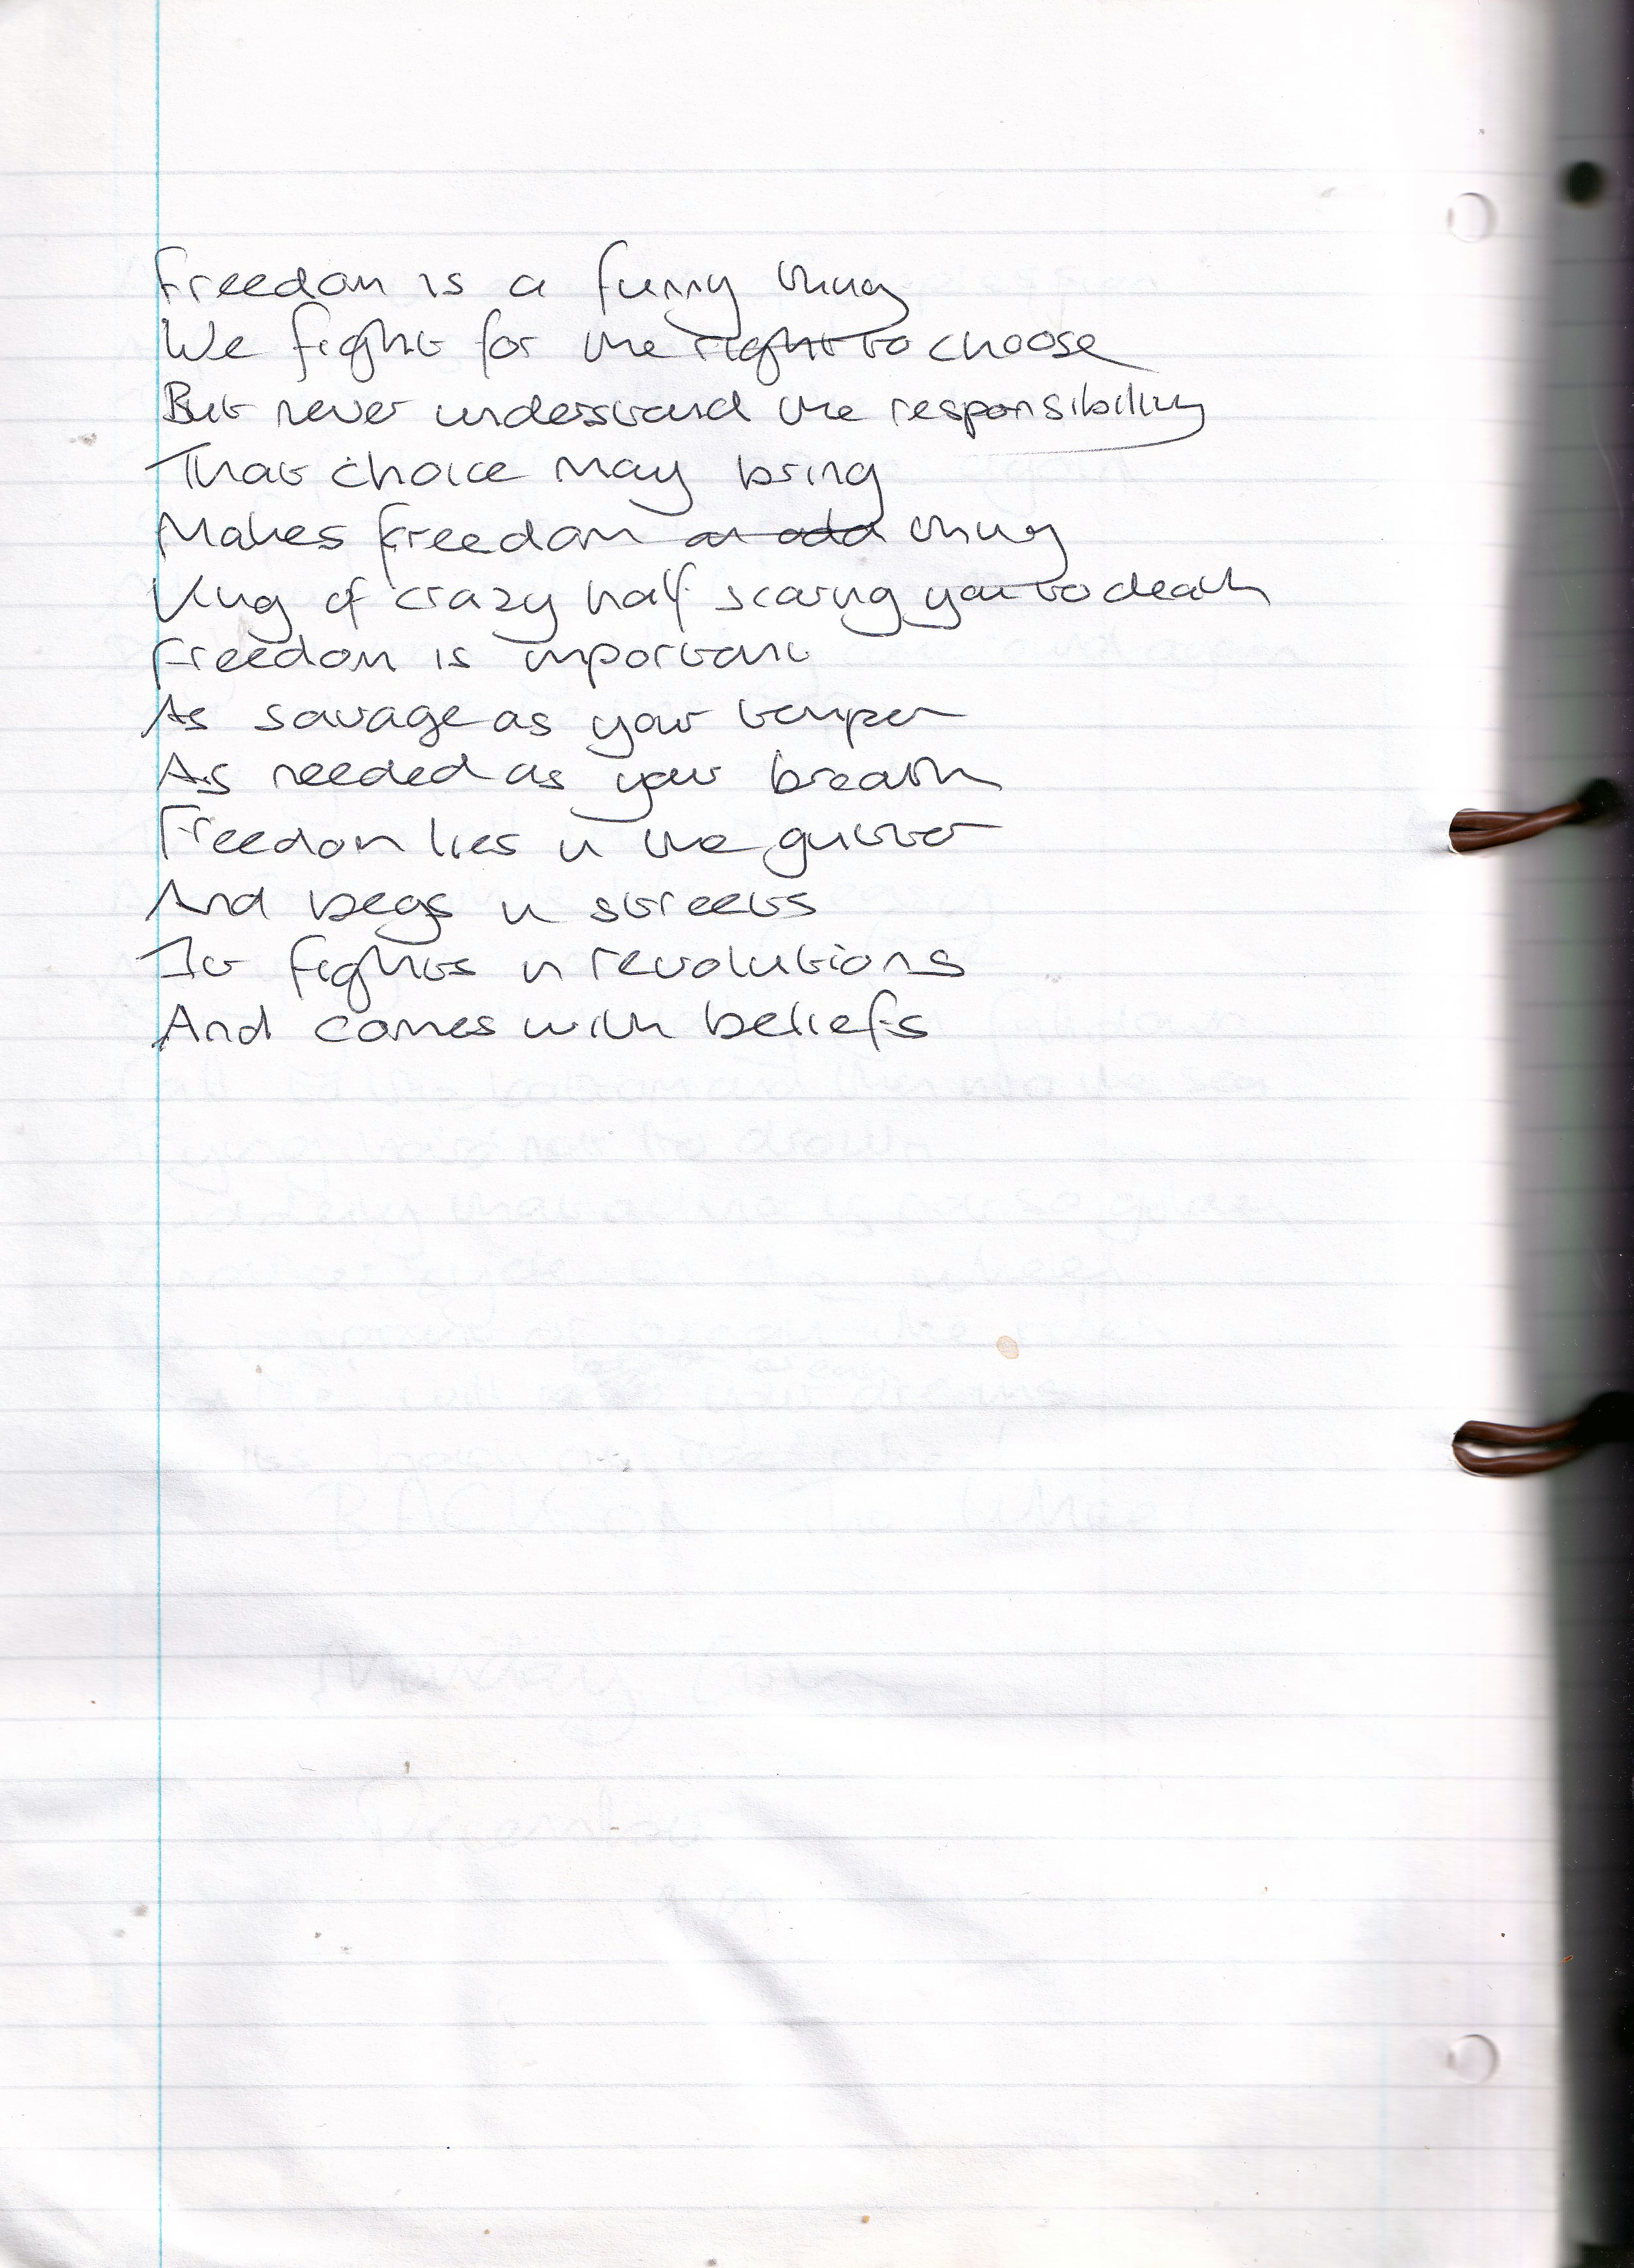 Freedom is a funny thing
We fight for the right to choose
But never understand the responsibility
That choice may bring
Makes freedom an odd thing
King of crazy half scaring you to death
Freedom is important
As savage as your temper
As needed as your breath
Freedom lies in the gutter
And begs in streets
It fights in revolutions
And comes with beliefs